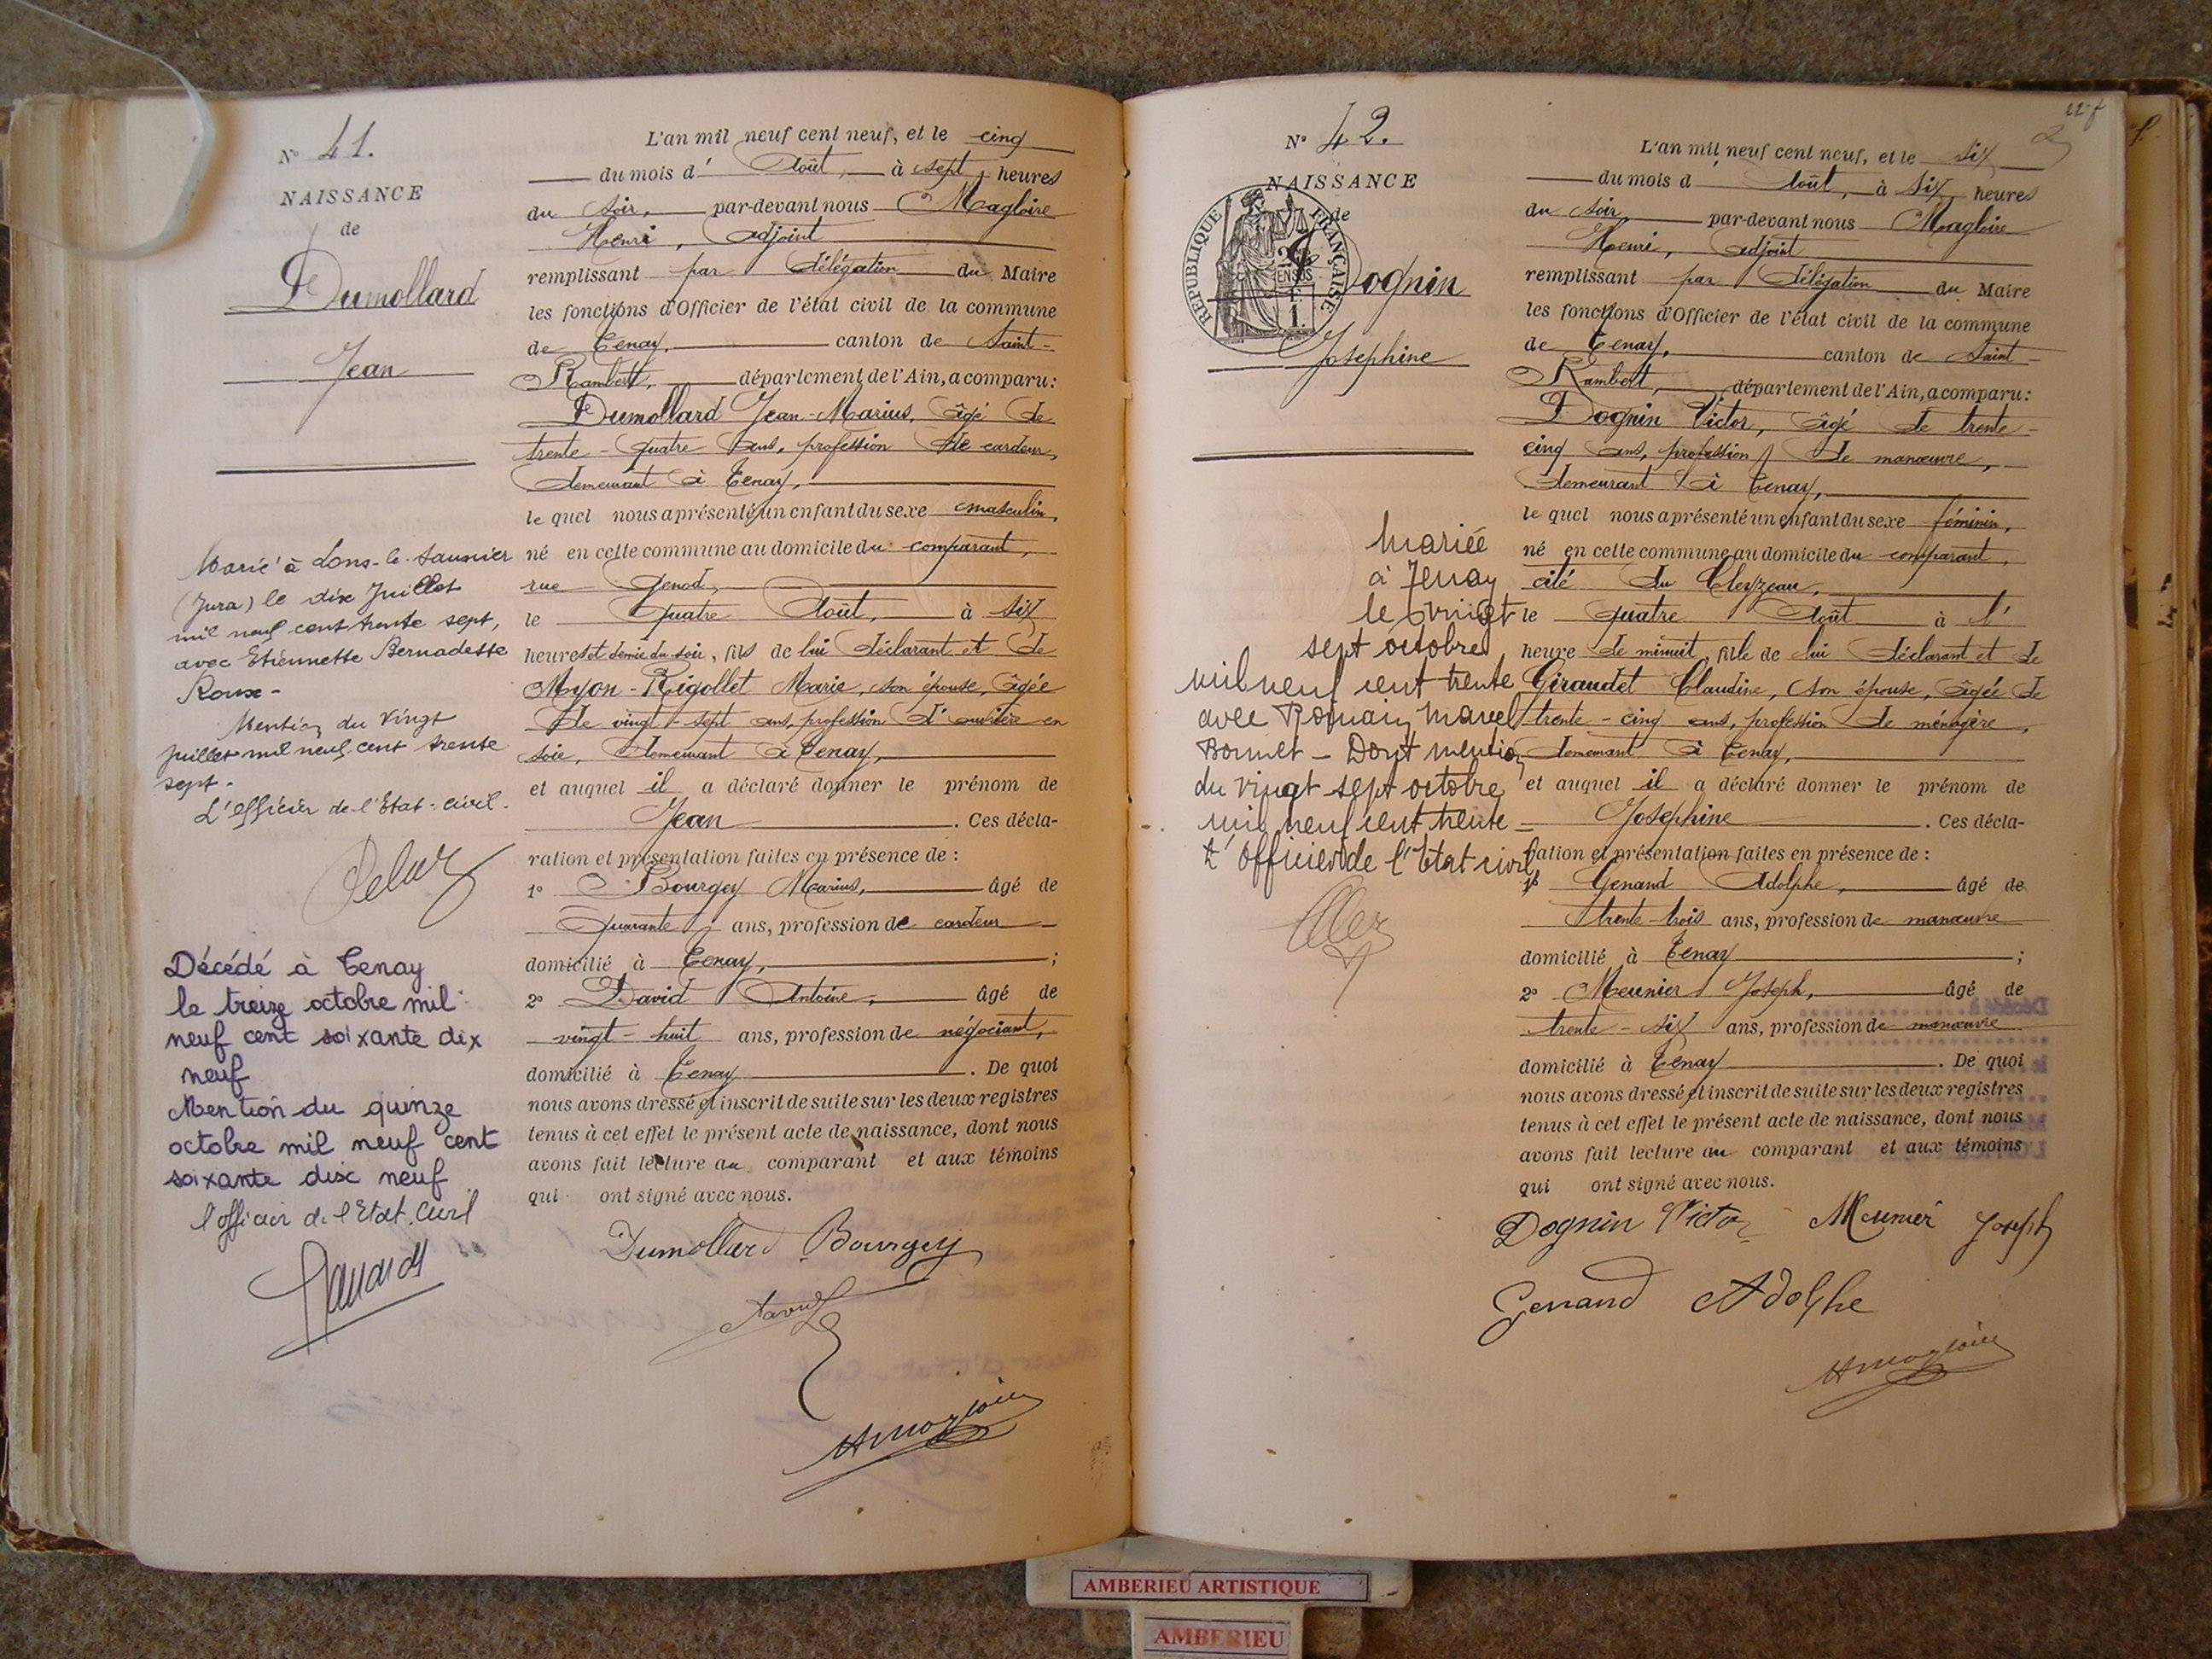 N° 41.
NAISSANCE
de
Dumollard
Jean
Marié à Lons-le-Saunier
(Jura) le dix Juillet
mil neuf cent trente sept,
avec Etiennette Bernadette
Roux-
Mention du vingt
Juillet mil neuf cent trente
sept-
L'officier de l'Etat-civil.
Décédé à Tenay
le treize octobre mil
neuf cent soixante dix
neuf
Mention du quinze
octobre mil neuf cent
soixante dix neuf
l'officier de l'Etat.Civil
L'an mil neuf cent neuf, et le cinq
du mois d' Août, à sept heures
du soir, par-devant nous Magloire
Henri, adjoint
remplissant par délégation du Maire
les fonctions d'Officier de l'état civil de la commune
de Tenay, canton de Saint-
Rambert, département de l'Ain, a comparu:
Dumollard Jean-Marius, âgé de
trente-quatre ans, profession de cardeur,
demeurant à Tenay,
le quel nous a présenté un enfant du sexe masculin,
né en cette commune au domicile du comparant,
rue Genod,
le quatre Août, à six
heures et demie du soir, fils de lui déclarant et de
Moyon-Rigollet Marie, son épouse, âgée
de vingt-sept ans, profession d'ouvrière en
soie, demeurant à Tenay,
et auquel il a déclaré donner le prénom de
Jean. Ces décla-
ration et présentation faites en présence de :
1° Bourgey Marius, âgé de
quarante ans, profession de cardeur
domicilié à Tenay, ;
2° David Antoine, âgé de
vingt-huit ans, profession de négociant,
domicilié à Tenay. De quoi
nous avons dressé et inscrit de suite sur les deux registres
tenus à cet effet le présent acte de naissance, dont nous
avons fait lecture au comparant et aux témoins
qui ont signé avec nous.
Dumollard Bourgey
David
HMagloire
N° 42.
NAISSANCE
de
RÉPUBLIQUE FRANÇAISE
Dognin
Josephine
Mariée
à Tenay
le vingt
sept octobre
mil neuf cent trente
avec Romain Marcel
Bonnet - Dont mention
du vingt sept octobre
mil neuf cent trente -
L'officier de l'Etat civil
22-f
L'an mil neuf cent neuf, et le six
du mois d Août, à six heures
du soir, par-devant nous Magloire
Henri, adjoint
remplissant par délégation du Maire
les fonctions d'Officier de l'état civil de la commune
de Tenay, canton de Saint-
Rambert, département de l'Ain, a comparu:
Dognin Victor, âgé de trente-
cinq ans, profession de manœuvre,
demeurant à Tenay,
le quel nous a présenté un enfant du sexe féminin,
né en cette commune au domicile du comparant,
cité du Cleyzeau,
le quatre Août à l'
heure de minuit, fille de lui déclarant et de
Giraudet Claudine, son épouse, âgée de
trente-cinq ans, profession de ménagère,
demeurant à Tenay,
et auquel il a déclaré donner le prénom de
Josephine. Ces décla-
ration et présentation faites en présence de :
1° Genand Adolphe, âgé de
trente-trois ans, profession de manœuvre
domicilié à Tenay ;
2° Meunier Joseph, âgé de
trente-six ans, profession de manœuvre
domicilié à Tenay. De quoi
nous avons dressé et inscrit de suite sur les deux registres
tenus à cet effet le présent acte de naissance, dont nous
avons fait lecture au comparant et aux témoins
qui ont signé avec nous.
Dognin Victor Meunier Joseph
Genand Adolphe
HMagloire
AMBERIEU ARTISTIQUE
AMBERIEU